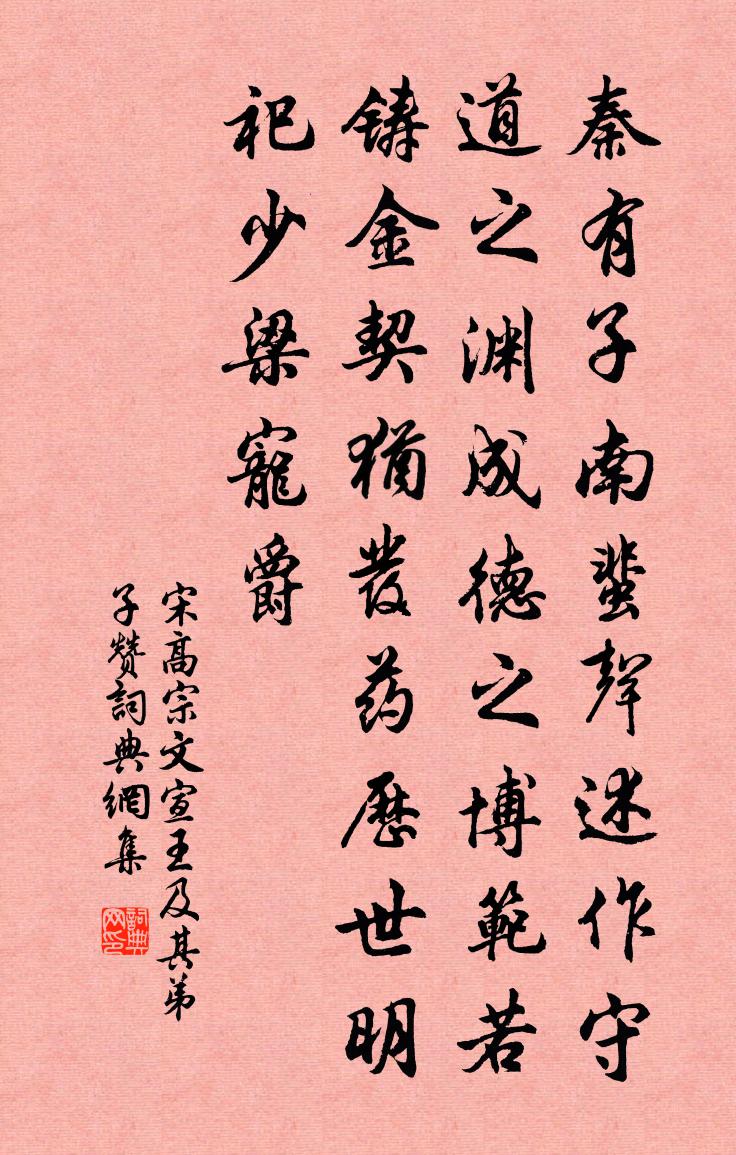 秦有子南蜚聲述作守
道之渊成德之博範若
鋳金契猶发药歷世明
祀少梁寵爵
宋高宗文宣王及其弟
子赞詞典網集
詞典网印